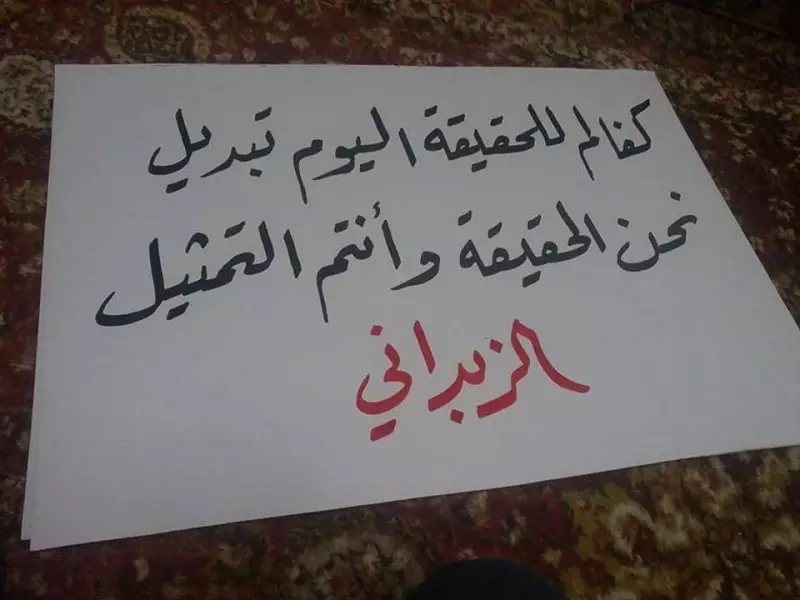 كفالم للحقيقة اليوم تبديل
نحن الحقيقة وأنتم التمثيل
الزبداني